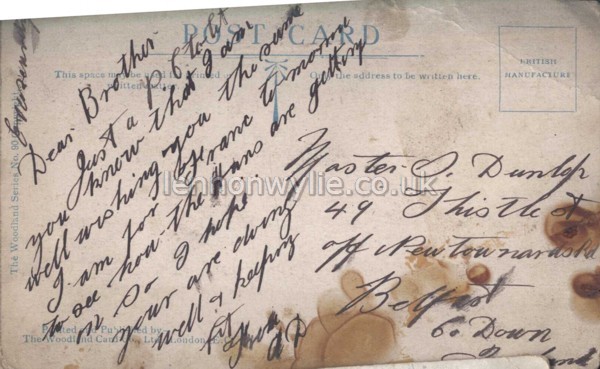 POST CARD
This space may be used for printed or written matter.
The address to be written here.
BRITISH
MANUFACTURE
Dear Brother
Just a P C to let
you know that I am
well wishing you the same
I am for France to morrow
to see how the Huns are getting
on so I hope
your are doing
well & keeping
fit
Master S. Dunlop
49 Thistle st
off Newtownards Rd
Belfast
Co Down
lennonwylie.co.uk
The Woodland Series No.
Printed and Published by
The Woodland Card Co., Ltd., London,